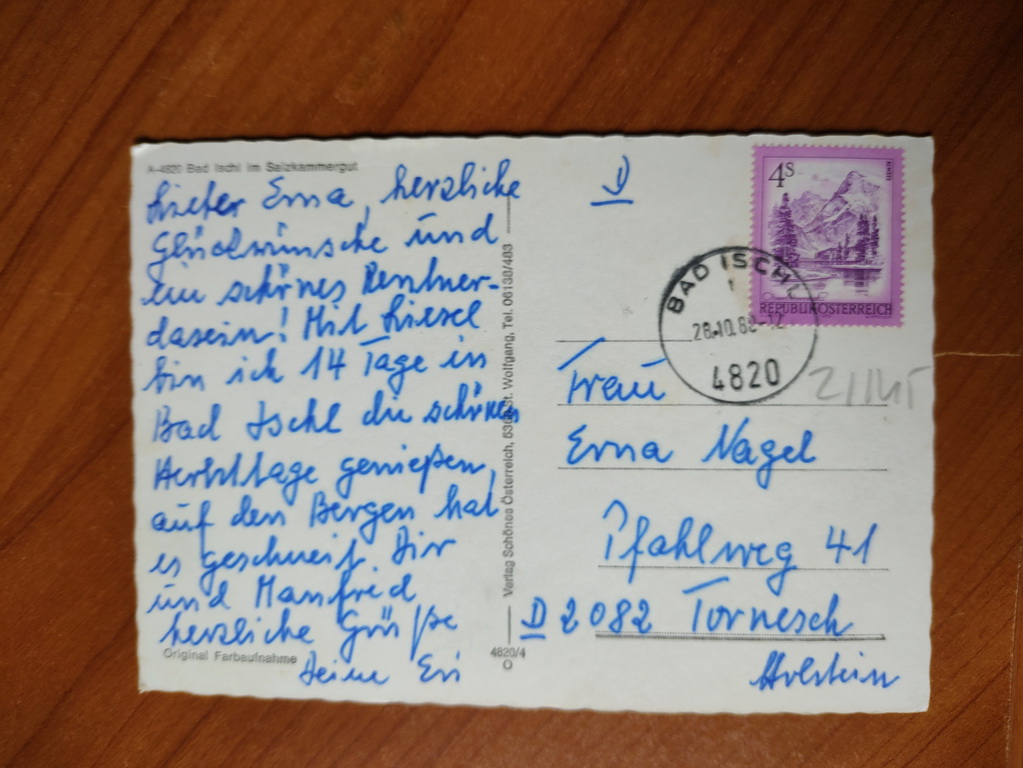 A-4820 Bad Ischl im Salzkammergut
Liebe Erna, herzliche
Glückwünsche und
ein schönes Rentner-
dasein! Mit Liesel
bin ich 14 Tage in
Bad Ischl die schönen
Herbsttage genießen,
auf den Bergen hat
es geschneit. Dir
und Manfred
herzliche Grüße
Deine Evi
Original Farbaufnahme
Verlag Schönes Österreich, St. Wolfgang, Tel. 06138/483
4820/4
D
4S
REPUBLIK ÖSTERREICH
BAD ISCHL
28.10.8
4820
Frau
Erna Nagel
Pfahlweg 41
D 2082 Tornesch
Holstein